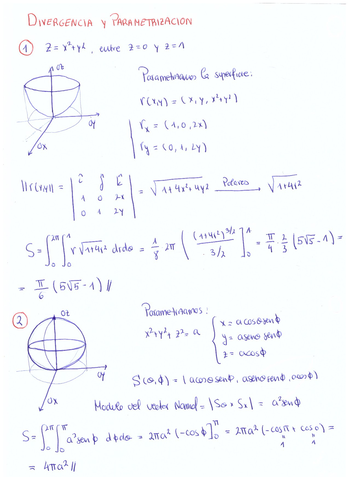 DIVERGENCIA Y PARAMETRIZACION
① z = x²+y², entre z=0 y z=1
Oz
Oy
Ox
Parametrizamos la superficie:
r(x,y) = (x, y, x²+y²)
r_x = (1, 0, 2x)
r_y = (0, 1, 2y)
||r(x,y)|| = | i j k | = √(1+4x²+4y²) Polares → √(1+4r²)
1 0 2x
0 1 2y
S = ∫₀^{2π} ∫₀^1 r √(1+4r²) dr dθ = 1/8 2π ( (1+4r²)^{3/2} / 3/2 ]₀^1 = π/4 · 2/3 (5√5 - 1) =
= π/6 (5√5 - 1) //
② Oz
Oy
Ox
Parametrizamos:
x²+y²+z² = a { x = a cosθ senϕ
y = a senθ senϕ
z = a cosϕ
S(θ,ϕ) = (a cosθ senϕ, a senθ senϕ, a cosϕ)
Modulo del vector Normal = |Sθ × Sx| = a² senϕ
S = ∫₀^{2π} ∫₀^π a² senϕ dϕdθ = 2πa² (-cosϕ]₀^π = 2πa² (-cosπ + cos0) =
= 4πa² //